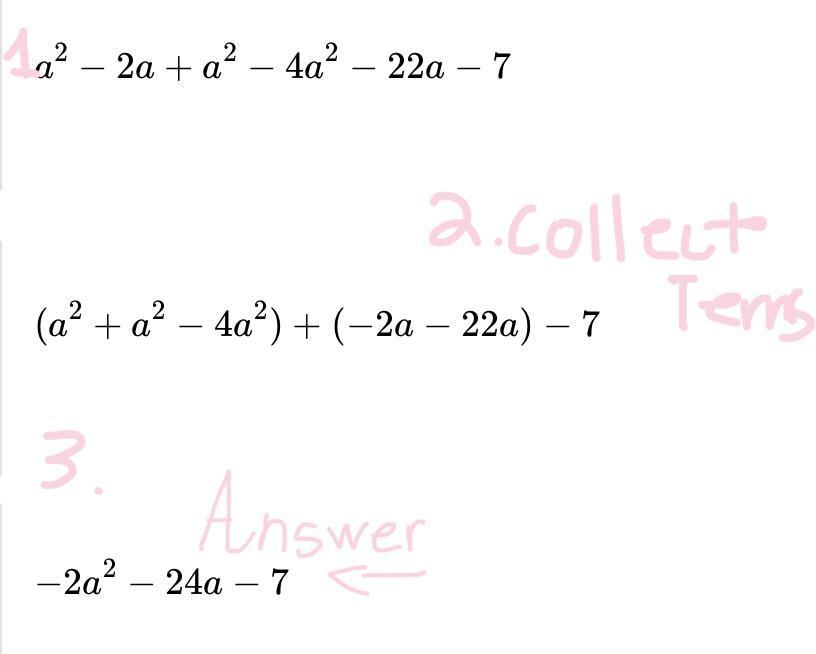 1 a² − 2a + a² − 4a² − 22a − 7
2. collect
Terms
(a² + a² − 4a²) + (−2a − 22a) − 7
3.
Answer
−2a² − 24a − 7